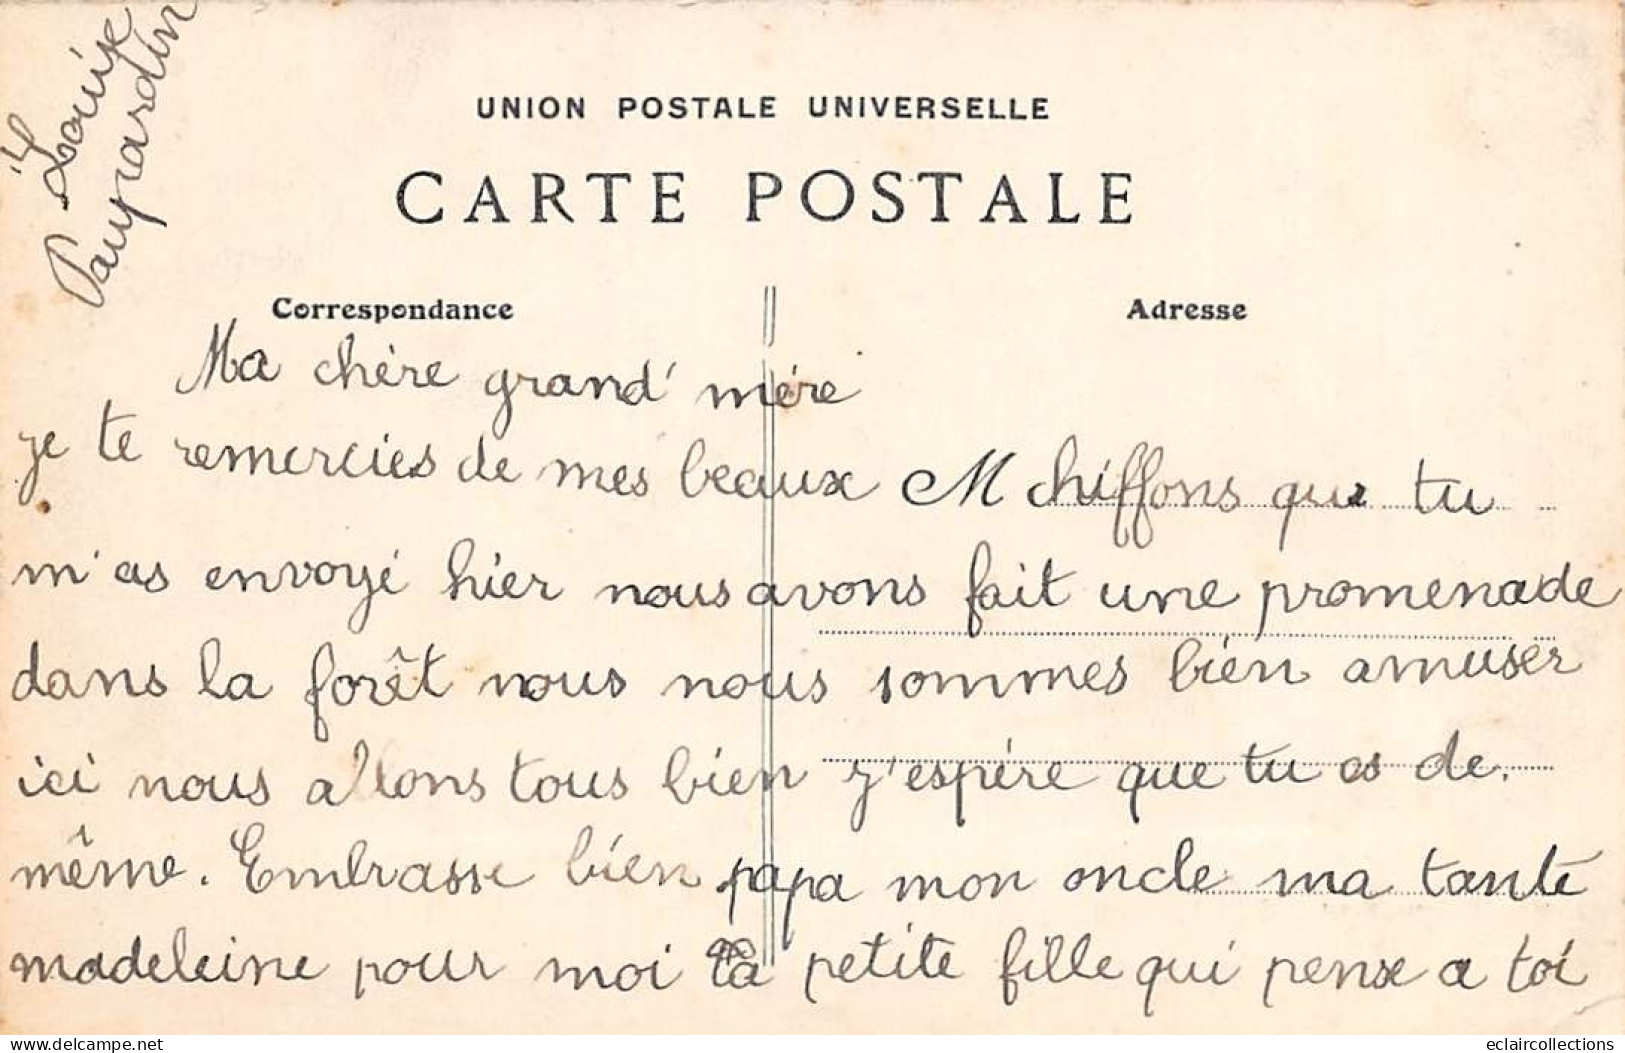 Louise
UNION POSTALE UNIVERSELLE
CARTE POSTALE
Correspondance
Adresse
Ma chère grand' mère
je te remercies de mes beaux M chiffons que tu
m'as envoyé hier nous avons fait une promenade
dans la forêt nous nous sommes bien amuser
ici nous allons tous bien j'espère que tu as de.
même. Embrasse bien papa mon oncle ma tante
madeleine pour moi ta petite fille qui pense a toi
eclaircollections